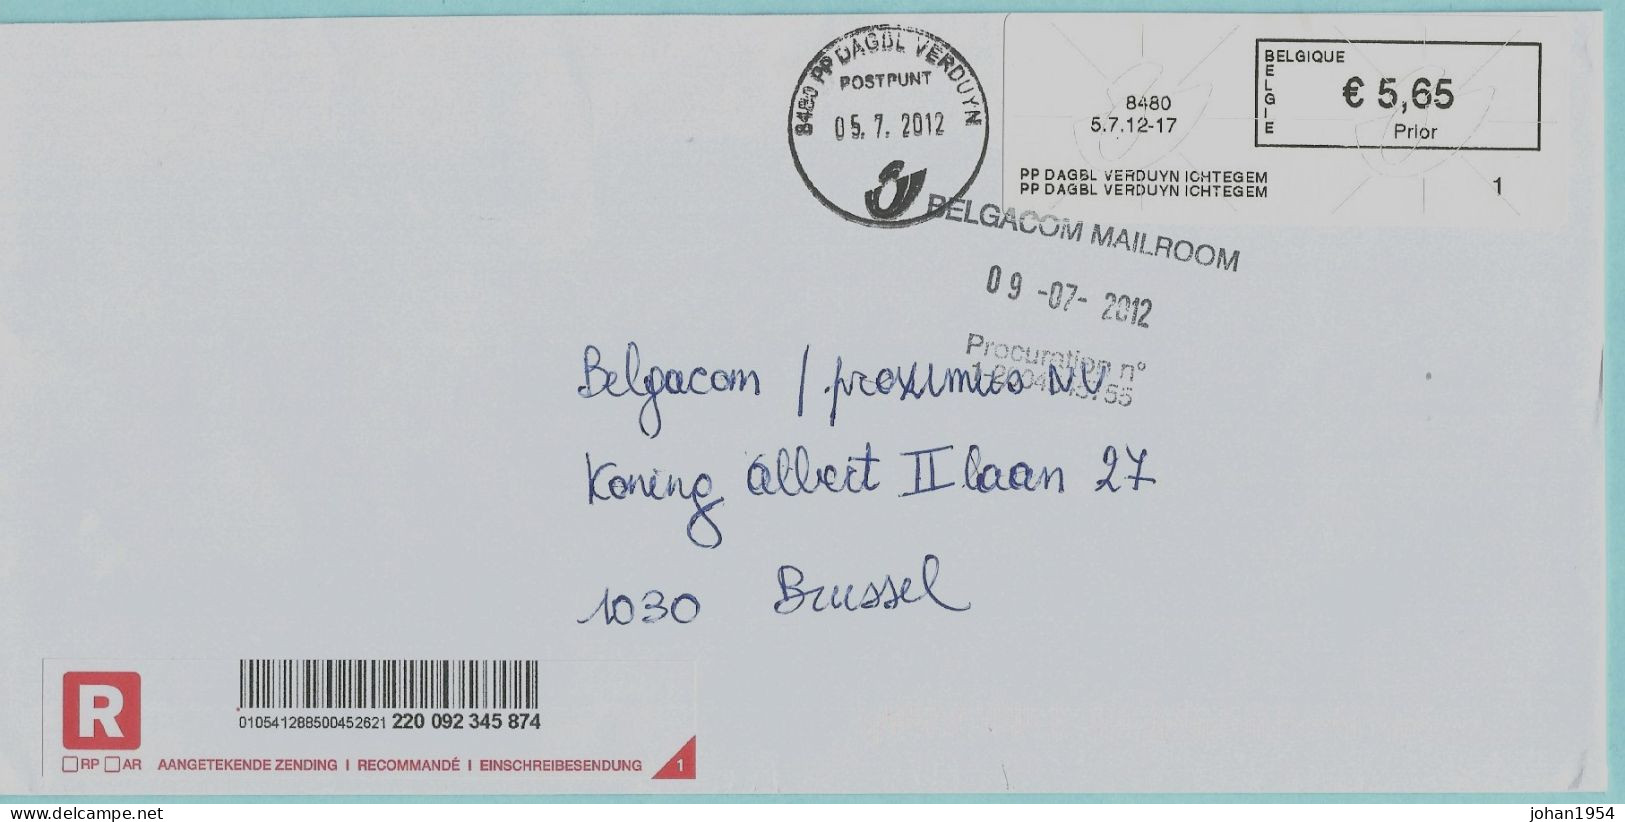 8480 PP DAGBL VERDUYN
POSTPUNT
05. 7. 2012
8480
5.7.12-17
BELGIQUE
BELGIE
€ 5,65
Prior
PP DAGBL VERDUYN ICHTEGEM
PP DAGBL VERDUYN ICHTEGEM
1
BELGACOM MAILROOM
09 -07- 2012
Procuration n°
Belgacom / proximus NV
Koning Albert II laan 27
1030 Brussel
R
010541288500452621 220 092 345 874
RP AR AANGETEKENDE ZENDING I RECOMMANDÉ I EINSCHREIBESENDUNG 1
johan1954